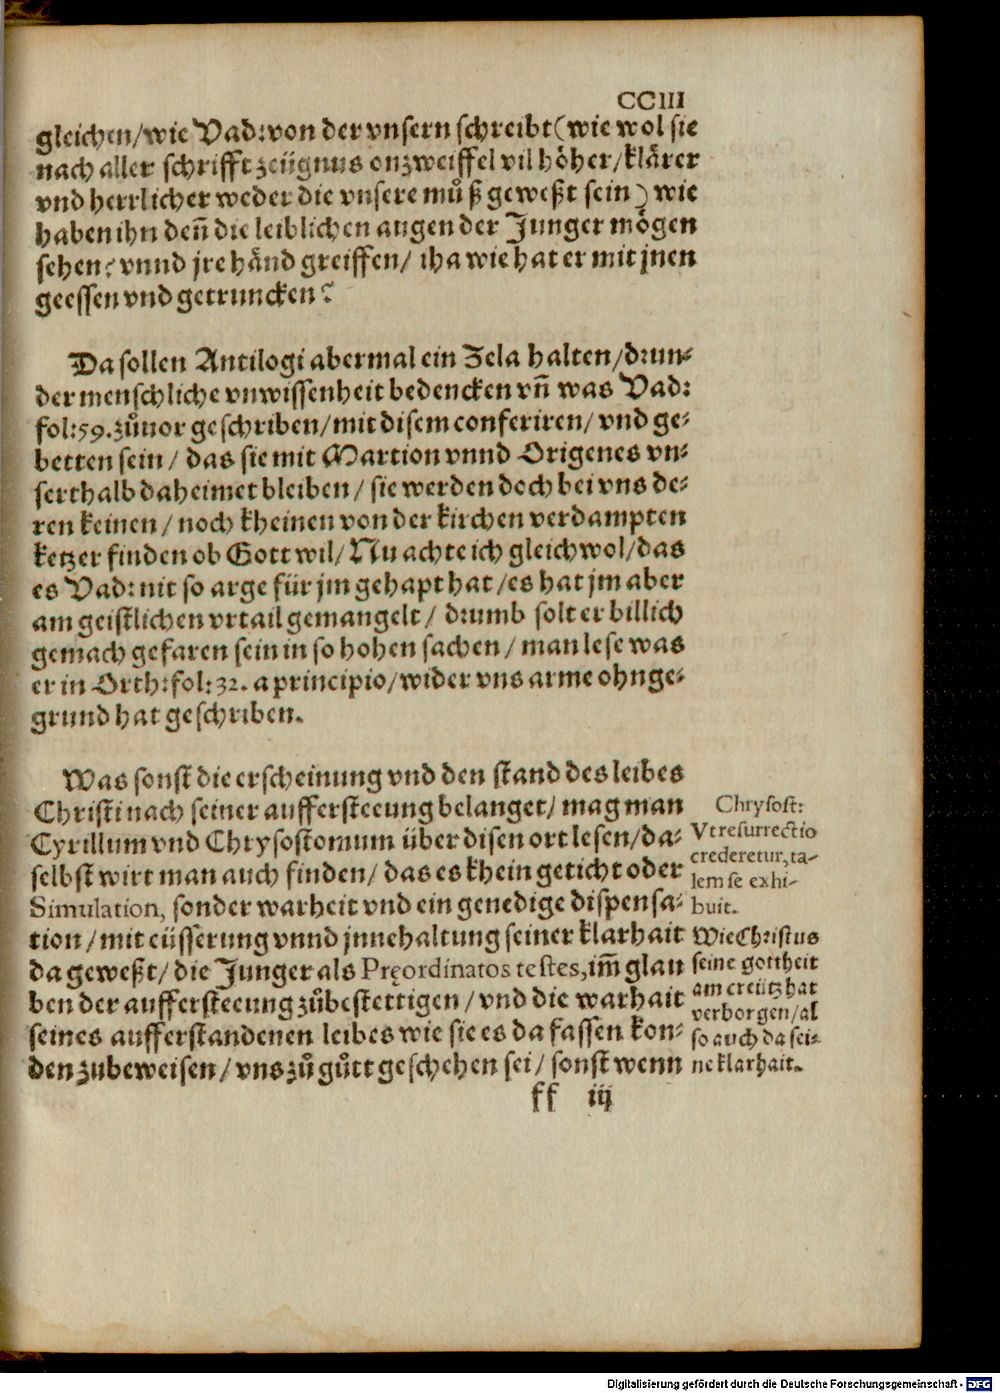 CCIII
gleichen/wie Vad: von der vnsern schreibt (wie wol sie
nach aller schrifft zeügnus onzweiffel vil höher/klärer
vnd herrlicher weder die vnsere můß geweßt sein) wie
haben ihn deñ die leiblichen augen der Junger mögen
sehen? vnnd jre händ greiffen/ iha wie hat er mit jnen
geessen vnd getruncken?
Da sollen Antilogi abermal ein Zela halten/drun⸗
der menschliche vnwissenheit bedencken vñ was Vad:
fol: 59. zůuor geschriben/mit disem conferiren/ vnd ge⸗
betten sein/ das sie mit Martion vnnd Origenes vn⸗
serthalb daheimet bleiben/ sie werden doch bei vns de⸗
ren keinen/ noch kheinen von der kirchen verdampten
ketzer finden ob Gott wil/ Nu achte ich gleichwol/das
es Vad: nit so arge für jm gehapt hat/es hat jm aber
am geistlichen vrtail gemangelt/ drumb solt er billich
gemach gefaren sein in so hohen sachen/ man lese was
er in Orth: fol: 32. a principio/wider vns arme ohnge⸗
grund hat geschriben.
Was sonst die erscheinung vnd den stand des leibes
Christi nach seiner aufferstecung belanget/ mag man
Cyrillum vnd Chrysostomum über disen ort lesen/da⸗
selbst wirt man auch finden/ das es khein geticht oder
Simulation, sonder warheit vnd ein genedige dispensa⸗
tion/mit eüsserung vnnd jnnehaltung seiner klarhait
da geweßt/ die Junger als Pręordinatos testes, im̃ glau
ben der aufferstecung zůbestettigen/ vnd die warhait
seines aufferstandenen leibes wie sie es da fassen kon⸗
den zubeweisen/ vns zů gůtt geschehen sei/ sonst wenn
Chrysost:
Vt resurrectio
crederetur, ta-
lem se exhi-
buit.
Wie Christus
seine gottheit
am creütz hat
verborgen/al
so auch da sei⸗
ne klarhait.
ff iij
Digitalisierung gefördert durch die Deutsche Forschungsgemeinschaft - DFG